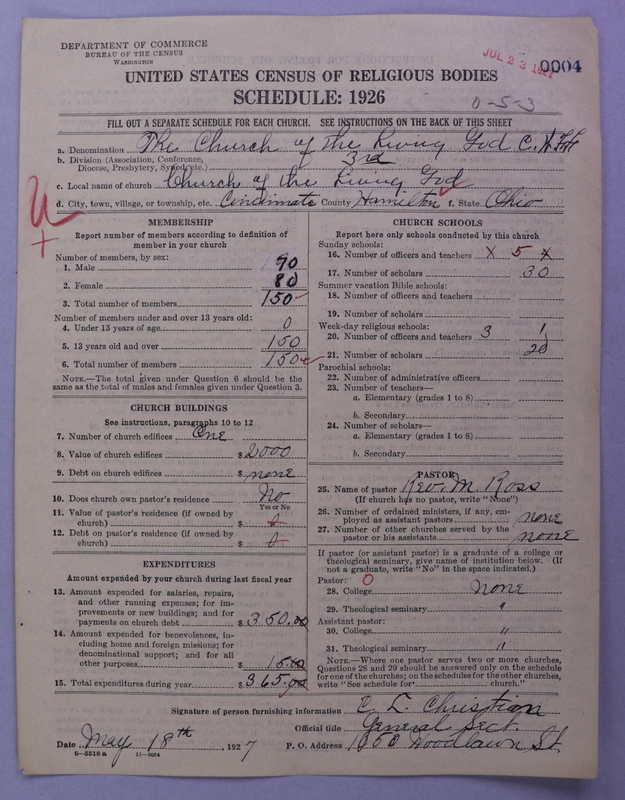 DEPARTMENT OF COMMERCE
BUREAU OF THE CENSUS
WASHINGTON
JUL 23 192
0004
UNITED STATES CENSUS OF RELIGIOUS BODIES
SCHEDULE: 1926
0-5-3
FILL OUT A SEPARATE SCHEDULE FOR EACH CHURCH. SEE INSTRUCTIONS ON THE BACK OF THIS SHEET
a. Denomination The Church of the Living God
b. Division (Association, Conference, Diocese, Presbytery, Synod, etc.) 3rd
c. Local name of church Church of the Living God
d. City, town, village, or township, etc. Cincinnati County Hamilton f. State Ohio
MEMBERSHIP
Report number of members according to definition of
member in your church
Number of members, by sex:
1. Male 70
2. Female 80
3. Total number of members 150
Number of members under and over 13 years old:
4. Under 13 years of age 0
5. 13 years old and over 150
6. Total number of members 150
NOTE.—The total given under Question 6 should be the
same as the total of males and females given under Question 3.
CHURCH BUILDINGS
See instructions, paragraphs 10 to 12
7. Number of church edifices One
8. Value of church edifices $ 2000
9. Debt on church edifices $ none
10. Does church own pastor's residence No
Yes or No
11. Value of pastor's residence (if owned by
church) $ 0
12. Debt on pastor's residence (if owned by
church) $ 0
EXPENDITURES
Amount expended by your church during last fiscal year
13. Amount expended for salaries, repairs,
and other running expenses; for im-
provements or new buildings; and for
payments on church debt $ 350.00
14. Amount expended for benevolences, in-
cluding home and foreign missions; for
denominational support; and for all
other purposes $ 15.00
15. Total expenditures during year $ 365.00
CHURCH SCHOOLS
Report here only schools conducted by this church
Sunday schools:
16. Number of officers and teachers X 5 X
17. Number of scholars 30
Summer vacation Bible schools:
18. Number of officers and teachers
19. Number of scholars
Week-day religious schools:
20. Number of officers and teachers 3 1
21. Number of scholars 20
Parochial schools:
22. Number of administrative officers
23. Number of teachers—
a. Elementary (grades 1 to 8)
b. Secondary
24. Number of scholars—
a. Elementary (grades 1 to 8)
b. Secondary
PASTOR
25. Name of pastor Rev. M. Ross
(If church has no pastor, write "None")
26. Number of ordained ministers, if any, em-
ployed as assistant pastors none
27. Number of other churches served by the
pastor or his assistants none
If pastor (or assistant pastor) is a graduate of a college or
theological seminary, give name of institution below. (If
not a graduate, write "No" in the space indicated.)
Pastor: 0
28. College None
29. Theological seminary "
Assistant pastor:
30. College "
31. Theological seminary "
NOTE.—Where one pastor serves two or more churches,
Questions 28 and 29 should be answered only on the schedule
for one of the churches; on the schedules for the other churches,
write "See schedule for church."
Signature of person furnishing information C L. Christian
Official title General Sect.
Date May 18th, 1927 P. O. Address 1050 Woodlawn St.
8—5518 a 11—9004